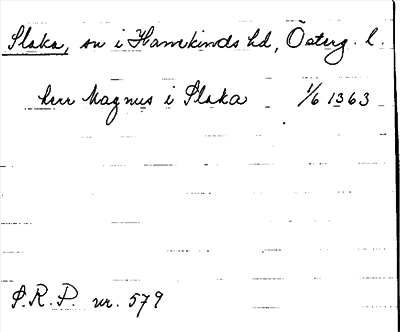 Slaka, sn i Hanekinds hd, Österg. l.
herr Magnus i Slaka 1/6 1363
S.R.P. nr. 579